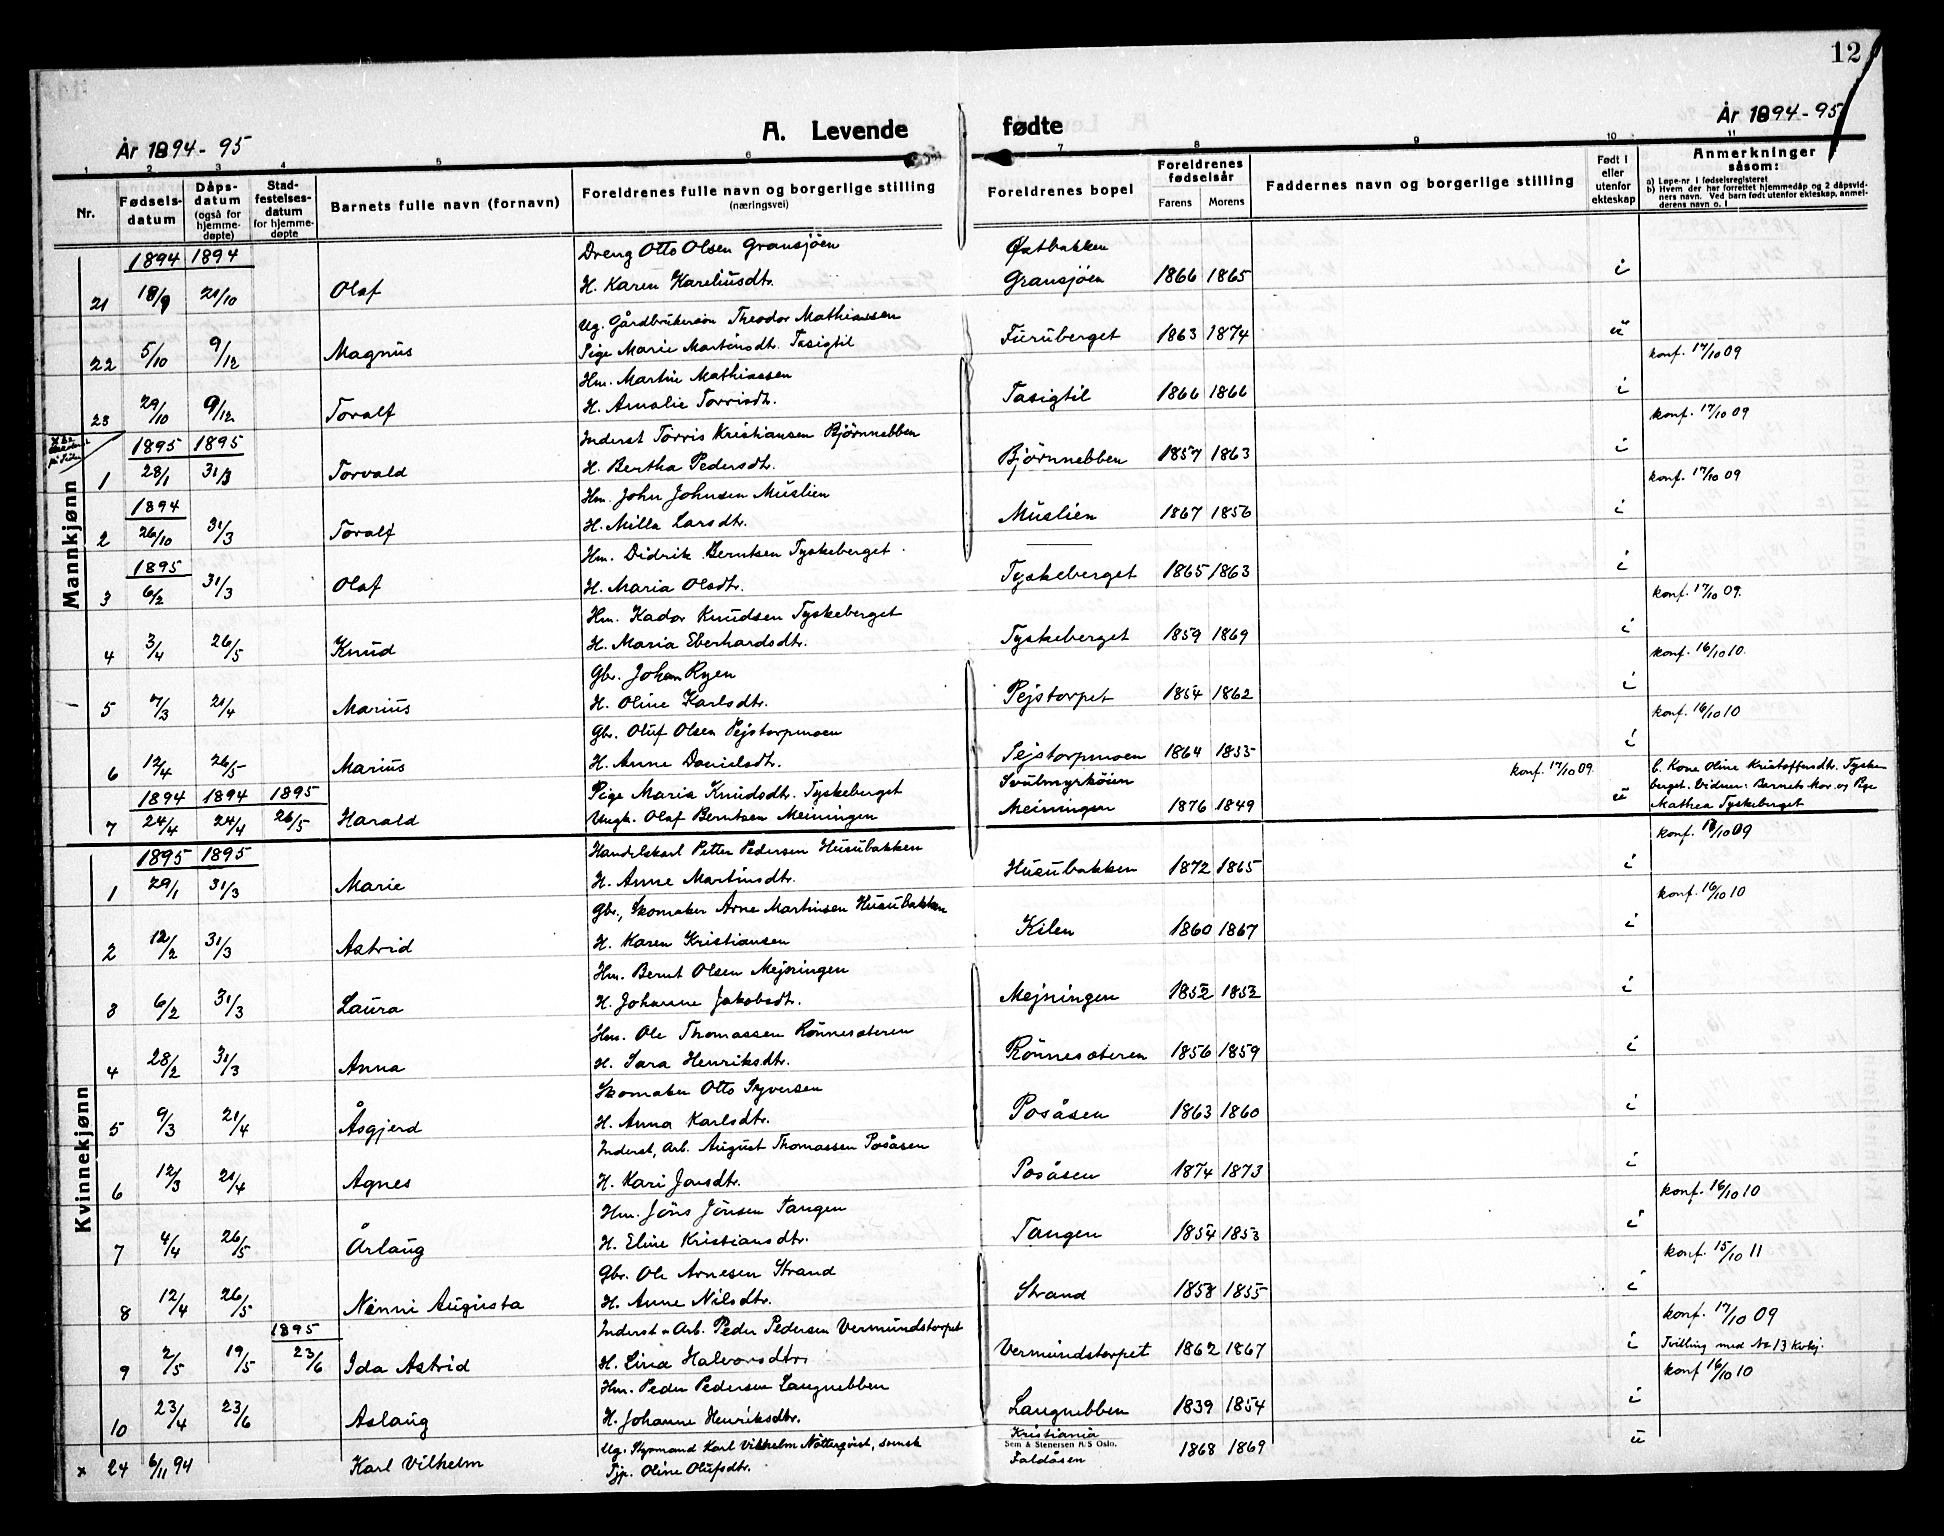 12
År 1894-95 A. Levende fødte År 1894-95
1 2 3 4 5 6 7 8 9 10 11
Nr. Fødselsdatum Dåpsdatum (også for hjemmedøpte) Stadfestelsesdatum for hjemmedøpte Barnets fulle navn (fornavn) Foreldrenes fulle navn og borgerlige stilling (næringsvei) Foreldrenes bopel Foreldrenes fødselsår Farens Morens Faddernes navn og borgerlige stilling Født i eller utenfor ekteskap Anmerkninger såsom: a) Løpe-nr i fødselsregisteret b) Hvem der har forrettet hjemmedåp og 2 dåpsvidners navn. Ved barn født utenfor ekteskap, anmelderens navn o. l
Mannkjønn
1894 1894 Dreng Otto Olsen Gransjöen Østbakken
21 18/9 21/10 Olaf H. Karen Kareliusdtr. Gransjöen 1866 1865 i
Ug. Gårdbrukersön Theodor Mathiassen
22 5/10 9/12 Magnus Pige Marie Martinsdt. Tasigtil Furuberget 1863 1874 u konf. 17/10 09
Hm. Martin Mathiassen
23 29/10 9/12 Toralf H. Amalie Torrisdt. Tasigtil 1866 1866 i konf. 17/10 09
1895 1895 Inderst Torris Kristiansen Björnnebben
1 28/1 31/3 Torvald H. Bertha Pedersdt. Björnnebben 1857 1863 i konf. 17/10 09
1894 Hm. John Johnsen Muslien
2 26/10 31/3 Toralf H. Milla Larsdtr. Muslien 1867 1856 i
1895 Hm. Didrik Berntsen Tyskeberget
3 6/2 31/3 Olaf H. Maria Olsdtr. Tyskeberget 1865 1863 i konf. 17/10 09.
Hm. Kador Knudsen Tyskeberget
4 3/4 26/5 Knud H. Maria Eberhardsdtr. Tyskeberget 1859 1869 i konf. 16/10 10.
Gbr. Johan Ryen
5 7/3 21/4 Marius H. Oline Karlsdtr. Pejstorpet 1854 1862 i konf. 16/10 10
Gbr. Oluf Olsen Pejstorpmoen
6 12/4 26/5 Marius H. Anne Danielsdtr. Pejstorpmoen 1864 1855 i
1894 1894 1895 Pige Maria Knudsdt. Tyskeberget Svulmyrköien konf. 17/10 09. b. Kone Oline Kristoffersdtr. Tyske
7 24/4 24/4 26/5 Harald Ungk. Olaf Berntsen Meiningen Meiningen 1876 1849 u berget. Vidner: Barnets Mor og Pige
Mathea Tyskeberget
Kvinnekjønn
1895 1895 Handelskarl Petter Pedersen Husubakken
1 29/1 31/3 Marie H. Anne Martinsdtr. Husubakken 1872 1865 i konf. 18/10 09
Gbr., Skomaker Arne Martinsen Husubakken
2 12/2 31/3 Astrid H. Karen Kristiansen Kilen 1860 1867 i konf. 16/10 10
Hm. Bernt Olsen Mejningen
3 6/2 31/3 Laura H. Johanne Jakobsdt. Mejningen 1852 1852 i
Hm. Ole Thomassen Rönnesæteren
4 28/2 31/3 Anna H. Sara Henriksdtr. Rönnesæteren 1856 1859 i
Skomaker Otto Syversen
5 9/3 21/4 Åsgjerd H. Anna Karlsdtr. Posåsen 1863 1860 i
Inderst, Arb. August Thomassen Posåsen
6 12/3 21/4 Agnes H. Kari Jonsdtr. Posåsen 1874 1873 i konf. 16/10 10
Hm. Jöns Jönsen Tangen
7 4/4 26/5 Årlaug H. Eline Kristiansdtr. Tangen 1854 1853 i konf. 15/10 11
Gbr. Ole Arnesen Strand
8 12/4 26/5 Ninni Augusta H. Anne Nilsdtr. Strand 1858 1855 i konf. 17/10 09
1895 Inderst & Arb. Peder Pedersen Vermundstorpet
9 2/5 19/5 23/6 Ida Astrid H. Lina Halvorsdtr. Vermundstorpet 1862 1867 i Tvilling med No 13 Kvkj.
Hm. Peder Pedersen Langnebben konf 16/10 10
10 23/4 23/6 Aslaug H. Johanne Henriksdtr. Langnebben 1839 1854 i
Ug. Styrmand Karl Vilhelm Nötterqvist, svensk Kristiania
Sem & Stenersen A/S Oslo.
x 24 6/11 94 Karl Vilhelm Tjp. Oline Olufsdtr. Faldåsen 1868 1869 u